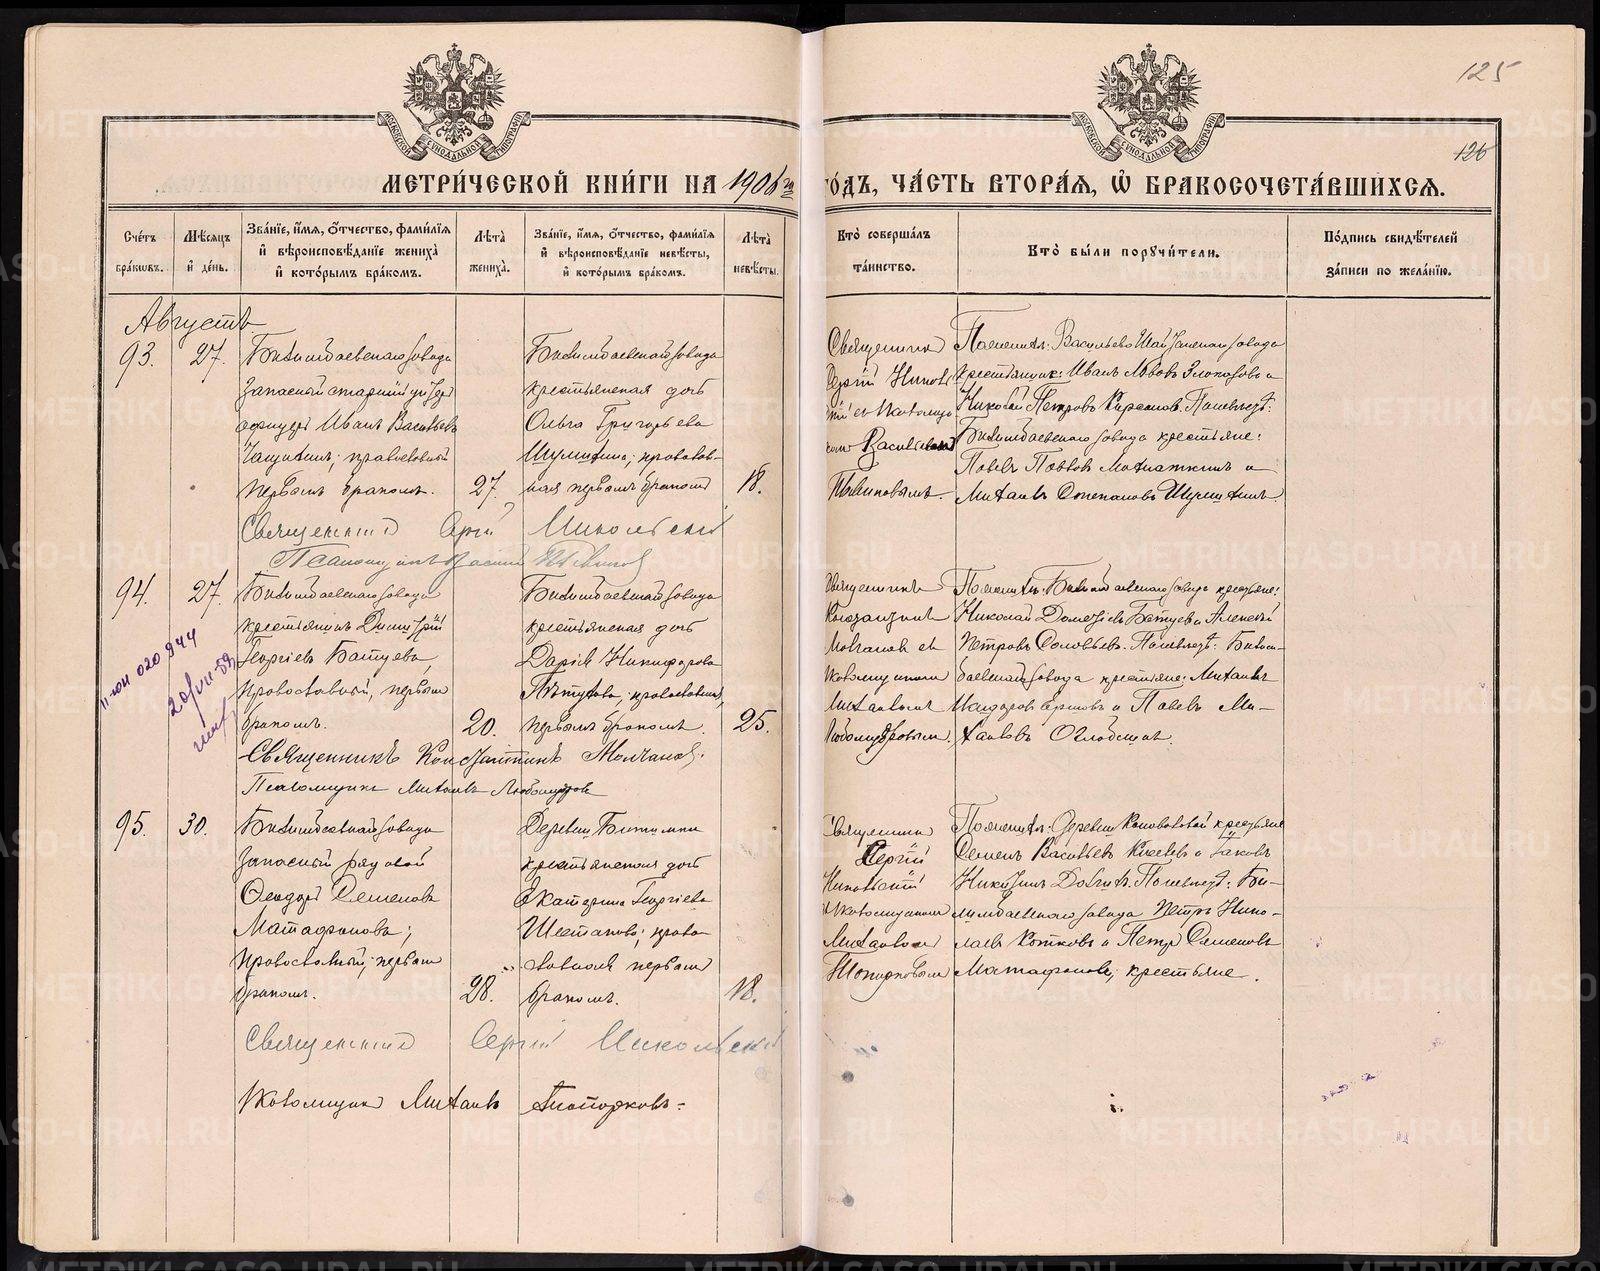 125
126
МОСКОВСКОЙ СУНОДАЛЬНОЙ ТИПОГРАФІИ
МОСКОВСКОЙ СУНОДАЛЬНОЙ ТИПОГРАФІИ
МЕТРИ́ЧЕСКОЙ КНИ́ГИ НА 1906 го
ГО́ДЪ, ЧА́СТЬ ВТОРА́Я, Ѽ БРАКОСОЧЕТА́ВШИХСЯ.
Сче́тъ бра́кωвъ.
Мѣ́сяцъ и҆ де́нь.
Зва́нїе, и҆́мя, ѻ҆́тчество, фами́лїя и҆ вѣроисповѣ́данїе жениха̀ и҆ кото́рымъ бра́комъ.
Лѣ́та̀ жениха̀.
Зва́нїе, и҆́мя, ѻ҆́тчество, фами́лїя и҆ вѣроисповѣ́данїе невѣ́сты, и҆ кото́рымъ бра́комъ.
Лѣ́та̀ невѣ́сты.
Кто̀ соверша́лъ та́инство.
Кто̀ бы́ли порꙋчи́тели.
По́дпись свидѣ́телей за́писи по жела́нїю.
Августъ
93.
27.
Билимбаевскаго завода
запасный старшій унтеръ
офицеръ Иванъ Васильевъ
православный
первымъ бракомъ.
27.
Билимбаевскаго завода
крестьянская дочь
Ольга Григорьева
Шумихина; православ-
ная первымъ бракомъ
18.
Священникъ
Сергій Николь
скій съ псаломщи
комъ Василіемъ
По женихѣ: Васильево-Шайтанскаго завода
крестьянинъ: Иванъ Львовъ Злоказовъ и
Николай Петровъ По невѣстѣ:
Билимбаевскаго завода крестьяне:
Павелъ Павловъ и
Михаилъ Степановъ Шумихинъ.
Священникъ Сергій Никольскій
Псаломщикъ Василій
94.
27.
Билимбаевскаго завода
крестьянинъ Димитрій
Георгіевъ Батуевъ,
православный, первымъ
бракомъ.
20.
Билимбаевскаго завода
крестьянская дочь
Дарія Никифорова
Пѣтухова, православная,
первымъ бракомъ.
25.
Священникъ
Константинъ
Молчановъ съ
псаломщикомъ
Михаиломъ
Любомудровымъ.
По женихѣ: Билимбаевскаго завода крестьяне:
Николай Батуевъ и Алексѣй
Петровъ Соловьевъ. По невѣстѣ: Билим-
баевскаго завода крестьяне: Михаилъ
и Павелъ Ми-
хайловъ Оглоблинъ.
Священникъ Константинъ Молчановъ.
Псаломщикъ Михаилъ Любомудровъ
11-юн 020944
20/VII-59
95.
30.
Билимбаевскаго завода
запасный рядовой
Ѳеодоръ Семеновъ
Матафоновъ;
православный, первымъ
бракомъ.
28.
Деревни Битимки
крестьянская дочь
Екатерина Георгіева
Шестакова; право-
славная первымъ
бракомъ.
18.
Священникъ
Сергій
Никольскій
съ псаломщикомъ
Михаиломъ
Топорковымъ
По женихѣ: деревни Коноваловой крестьяне
Семенъ Васильевъ Киселевъ и Іаковъ
Никитинъ По невѣстѣ: Би-
лимбаевскаго завода Петръ Нико-
лаевъ Котковъ и Петръ Семеновъ
Матафоновъ, крестьяне.
Священникъ Сергій Никольскій
Псаломщикъ Михаилъ Топорковъ
METRIKI.GASO-URAL.RU